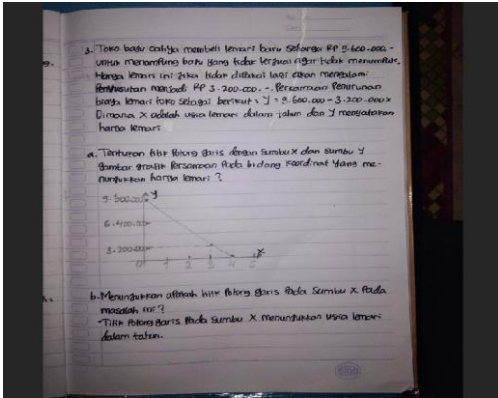 3. Toko baju cahya membeli lemari baru seharga RP 9.600.000.-
untuk menampung baju yang tidak terjual agar tidak menumpuk.
Harga lemari ini jika tidak dipakai lagi akan mengalami
Penyusutan menjadi RP 3.200.000.- Persamaan Penurunan
biaya lemari toko sebagai berikut: y = 9.600.000 - 3.200.000x
Dimana x adalah usia lemari dalam tahun dan y menyatakan
harga lemari
a. Tentukan titik Potong garis dengan sumbu x dan sumbu y
gambar grafik Persamaan Pada bidang koordinat yang me-
nunjukkan harga lemari?
y
9.600.000
6.400.000
3.200.000
0 1 2 3 4 5 x
b. Menunjukkan apakah titik Potong garis Pada sumbu x Pada
masalah ini?
- Titik Potong garis Pada sumbu x menunjukkan usia lemari
dalam tahun.